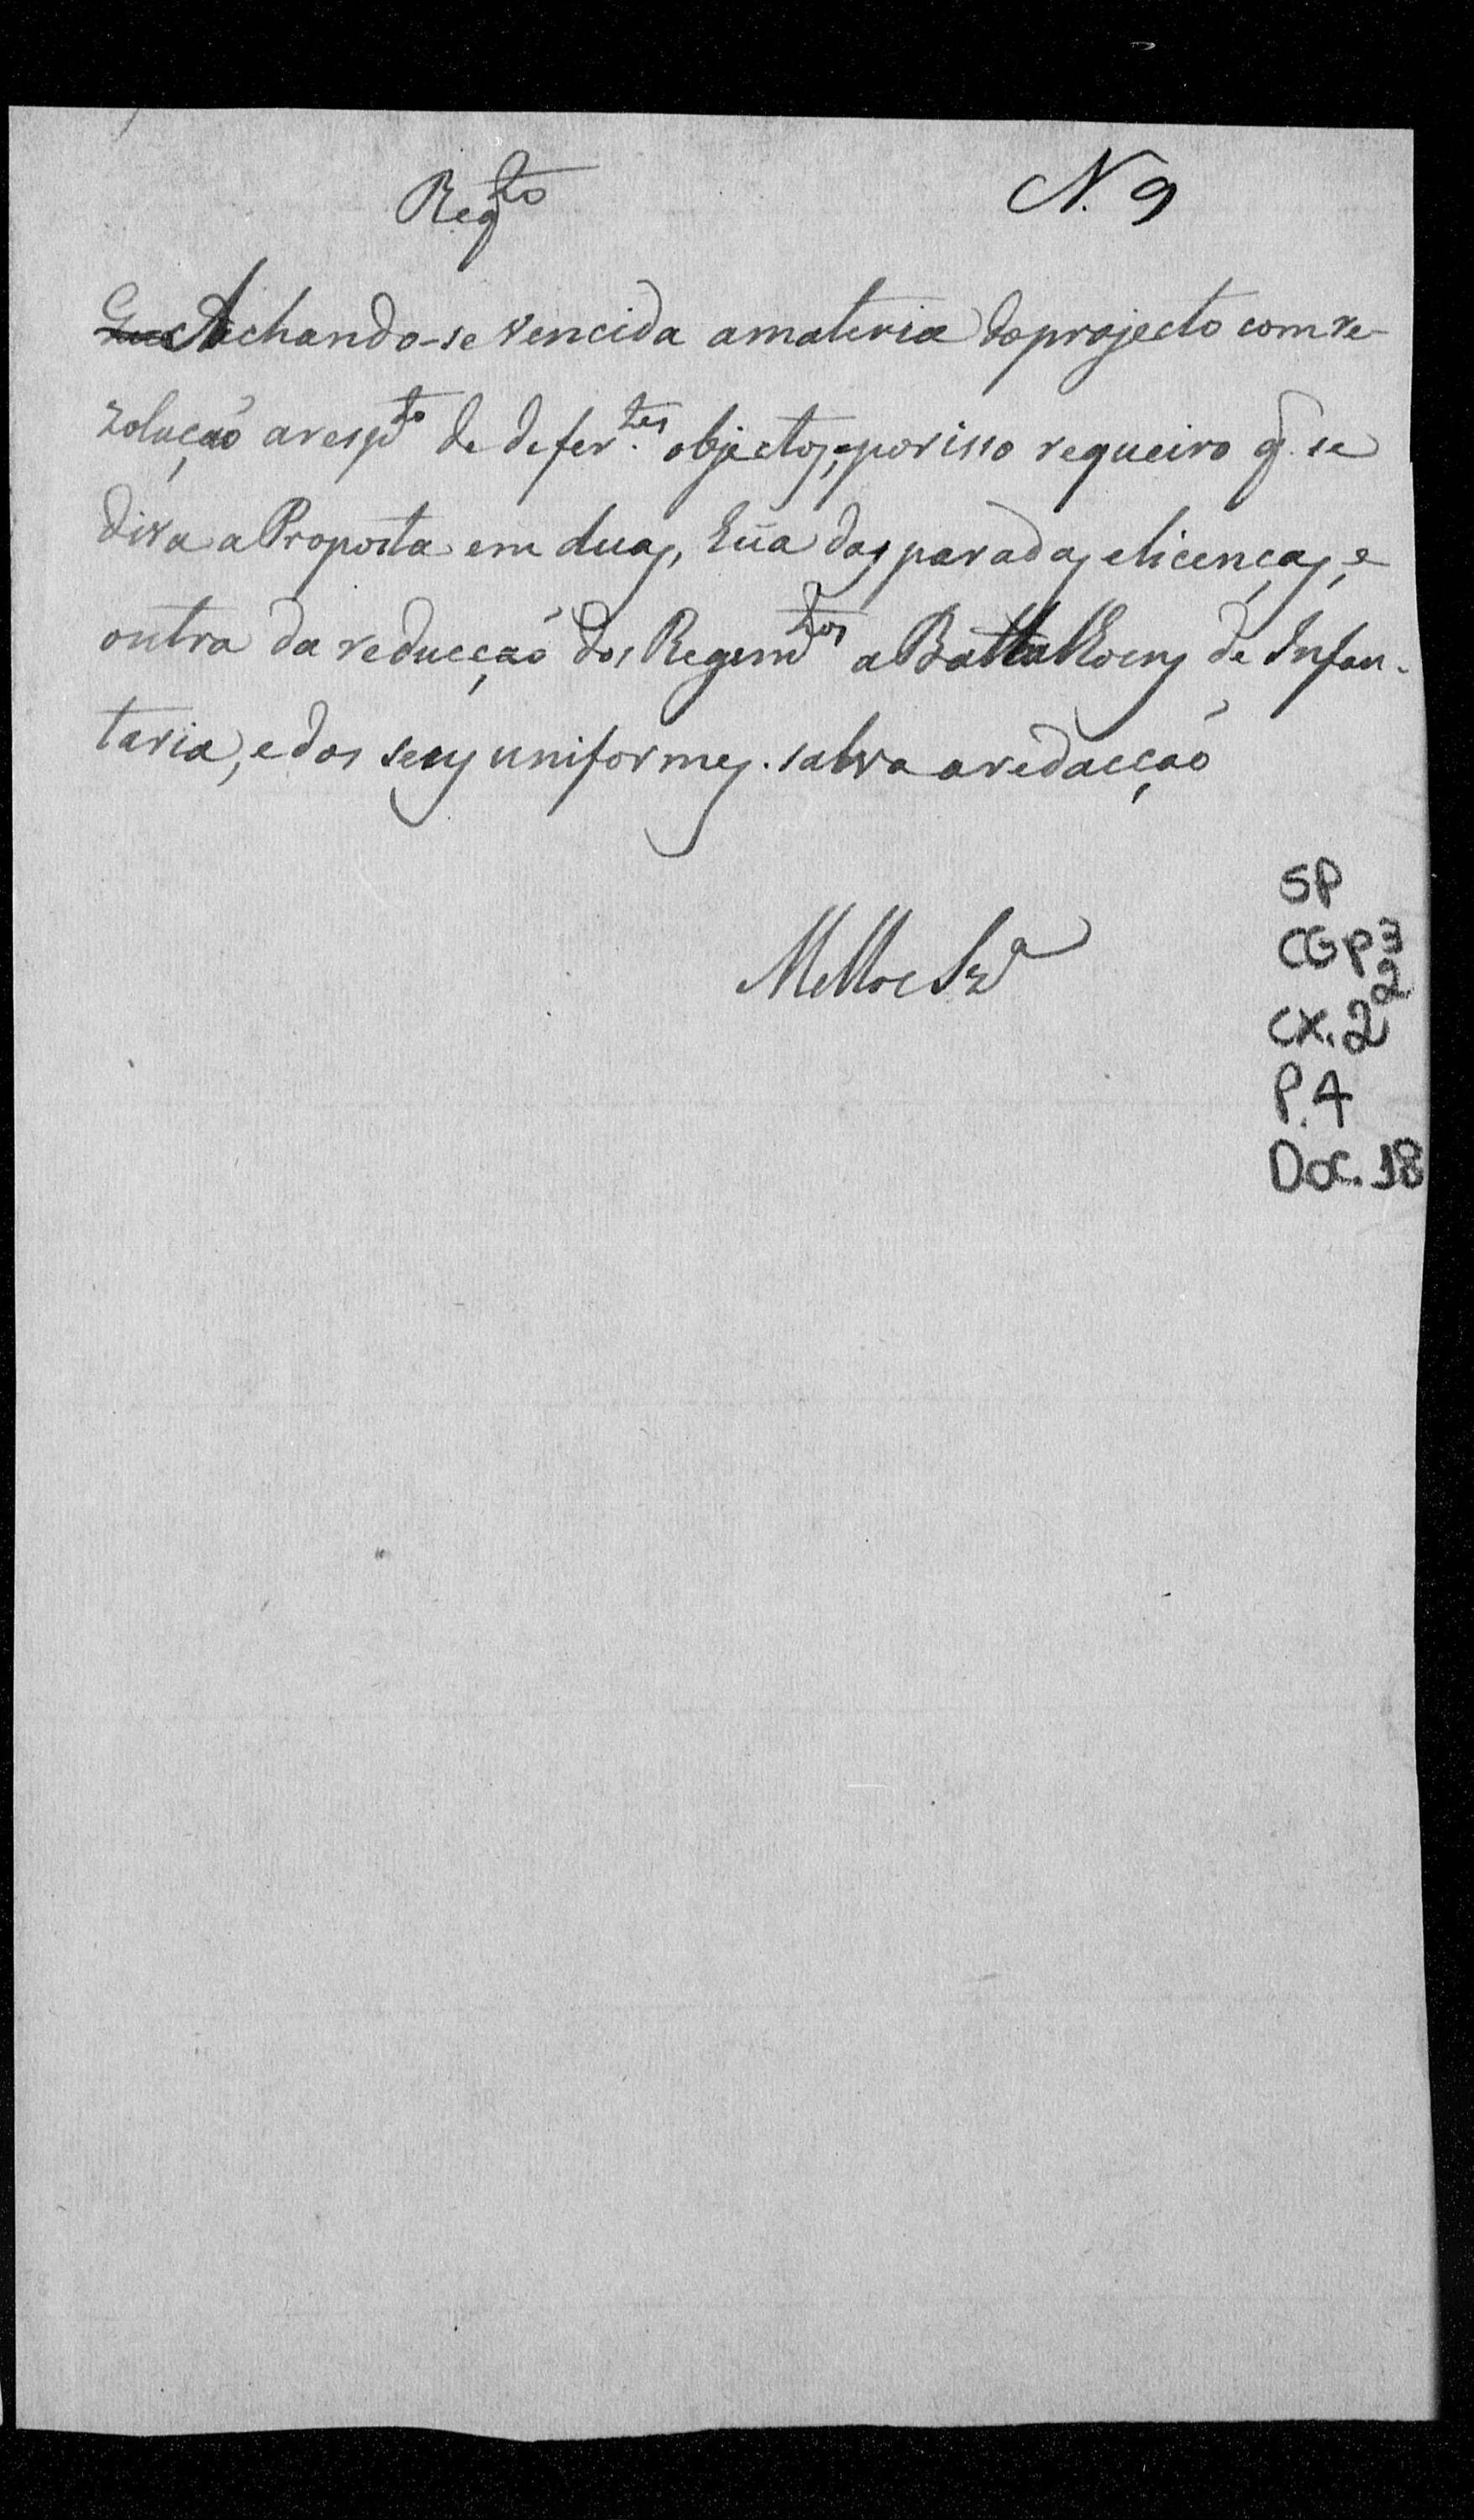 Reqto N. 9
Que Achando-se vencida a materia do projecto com re-
zolução a respto de defer.tes objectos, e por isso requeiro q. se
diva a Proposta em duas, hũa das paradas e licenças, e
outra da reducção dos Regimtos a Battalhoens de Infan-
taria, e dos seus uniformes. salva a redacção
Mello e Sza
SP
CGP3
CX. 2 2
P. 4
Doc. 18